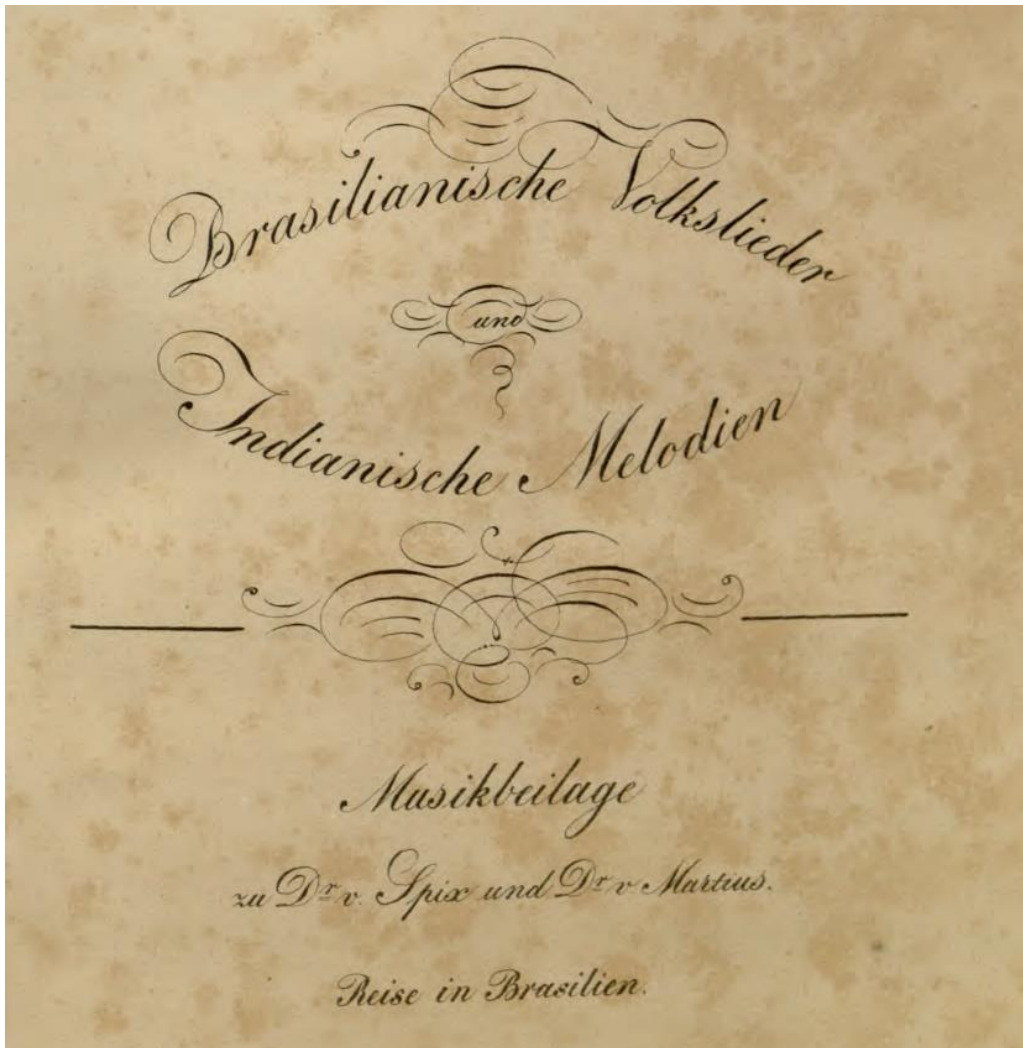 Brasilianische Volkslieder
und
Indianische Melodien
Musikbeilage
zu Dr v. Spix und Dr v Martius.
Reise in Brasilien.